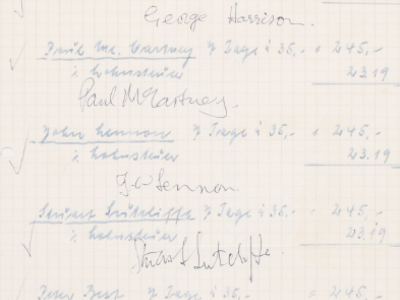 George Harrison.
Paul Mc. Cartney 7 Tage à 35,- = 245,-
% Lohnsteuer 23.19
Paul McCartney.
John Lennon 7 Tage à 35,- = 245,-
% Lohnsteuer 23.19
J W Lennon
Stuart Sutcliffe 7 Tage à 35,- = 245,-
% Lohnsteuer 23.19
Stuart Sutcliffe.
Peter Best 7 Tage à 35,- = 245,-